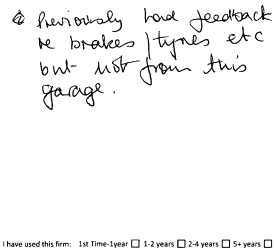 Previously had feedback
re brakes / tyres etc
but not from this
garage.
I have used this firm: 1st Time-1year ☐ 1-2 years ☐ 2-4 years ☐ 5+ years ☐